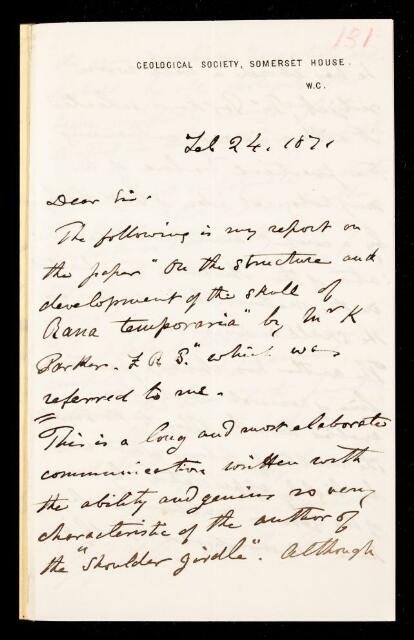 131
GEOLOGICAL SOCIETY, SOMERSET HOUSE.
W.C.
Feb 24. 1871
Dear Sir.
The following is my report on
the paper "On the structure and
development of the skull of
Rana temporaria" by Mr K
Parker. F R S." which was
referred to me.
This is a long and most elaborate
communication written with
the ability and genius so very
characteristic of the author of
the "Shoulder girdle". Although